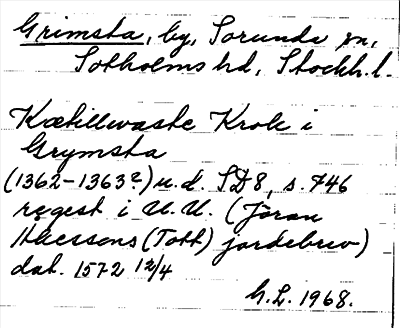 Grimsta, by, Sorunda sn,
Sotholms hd, Stockh. l.
Kætillwaste Krok i
Grymsta
(1362-1363?) u.d. SD8, s. 746
regest i U.U. (Jöran
(Tott) jordebrev)
dat. 1572 12/4
G.L. 1968.